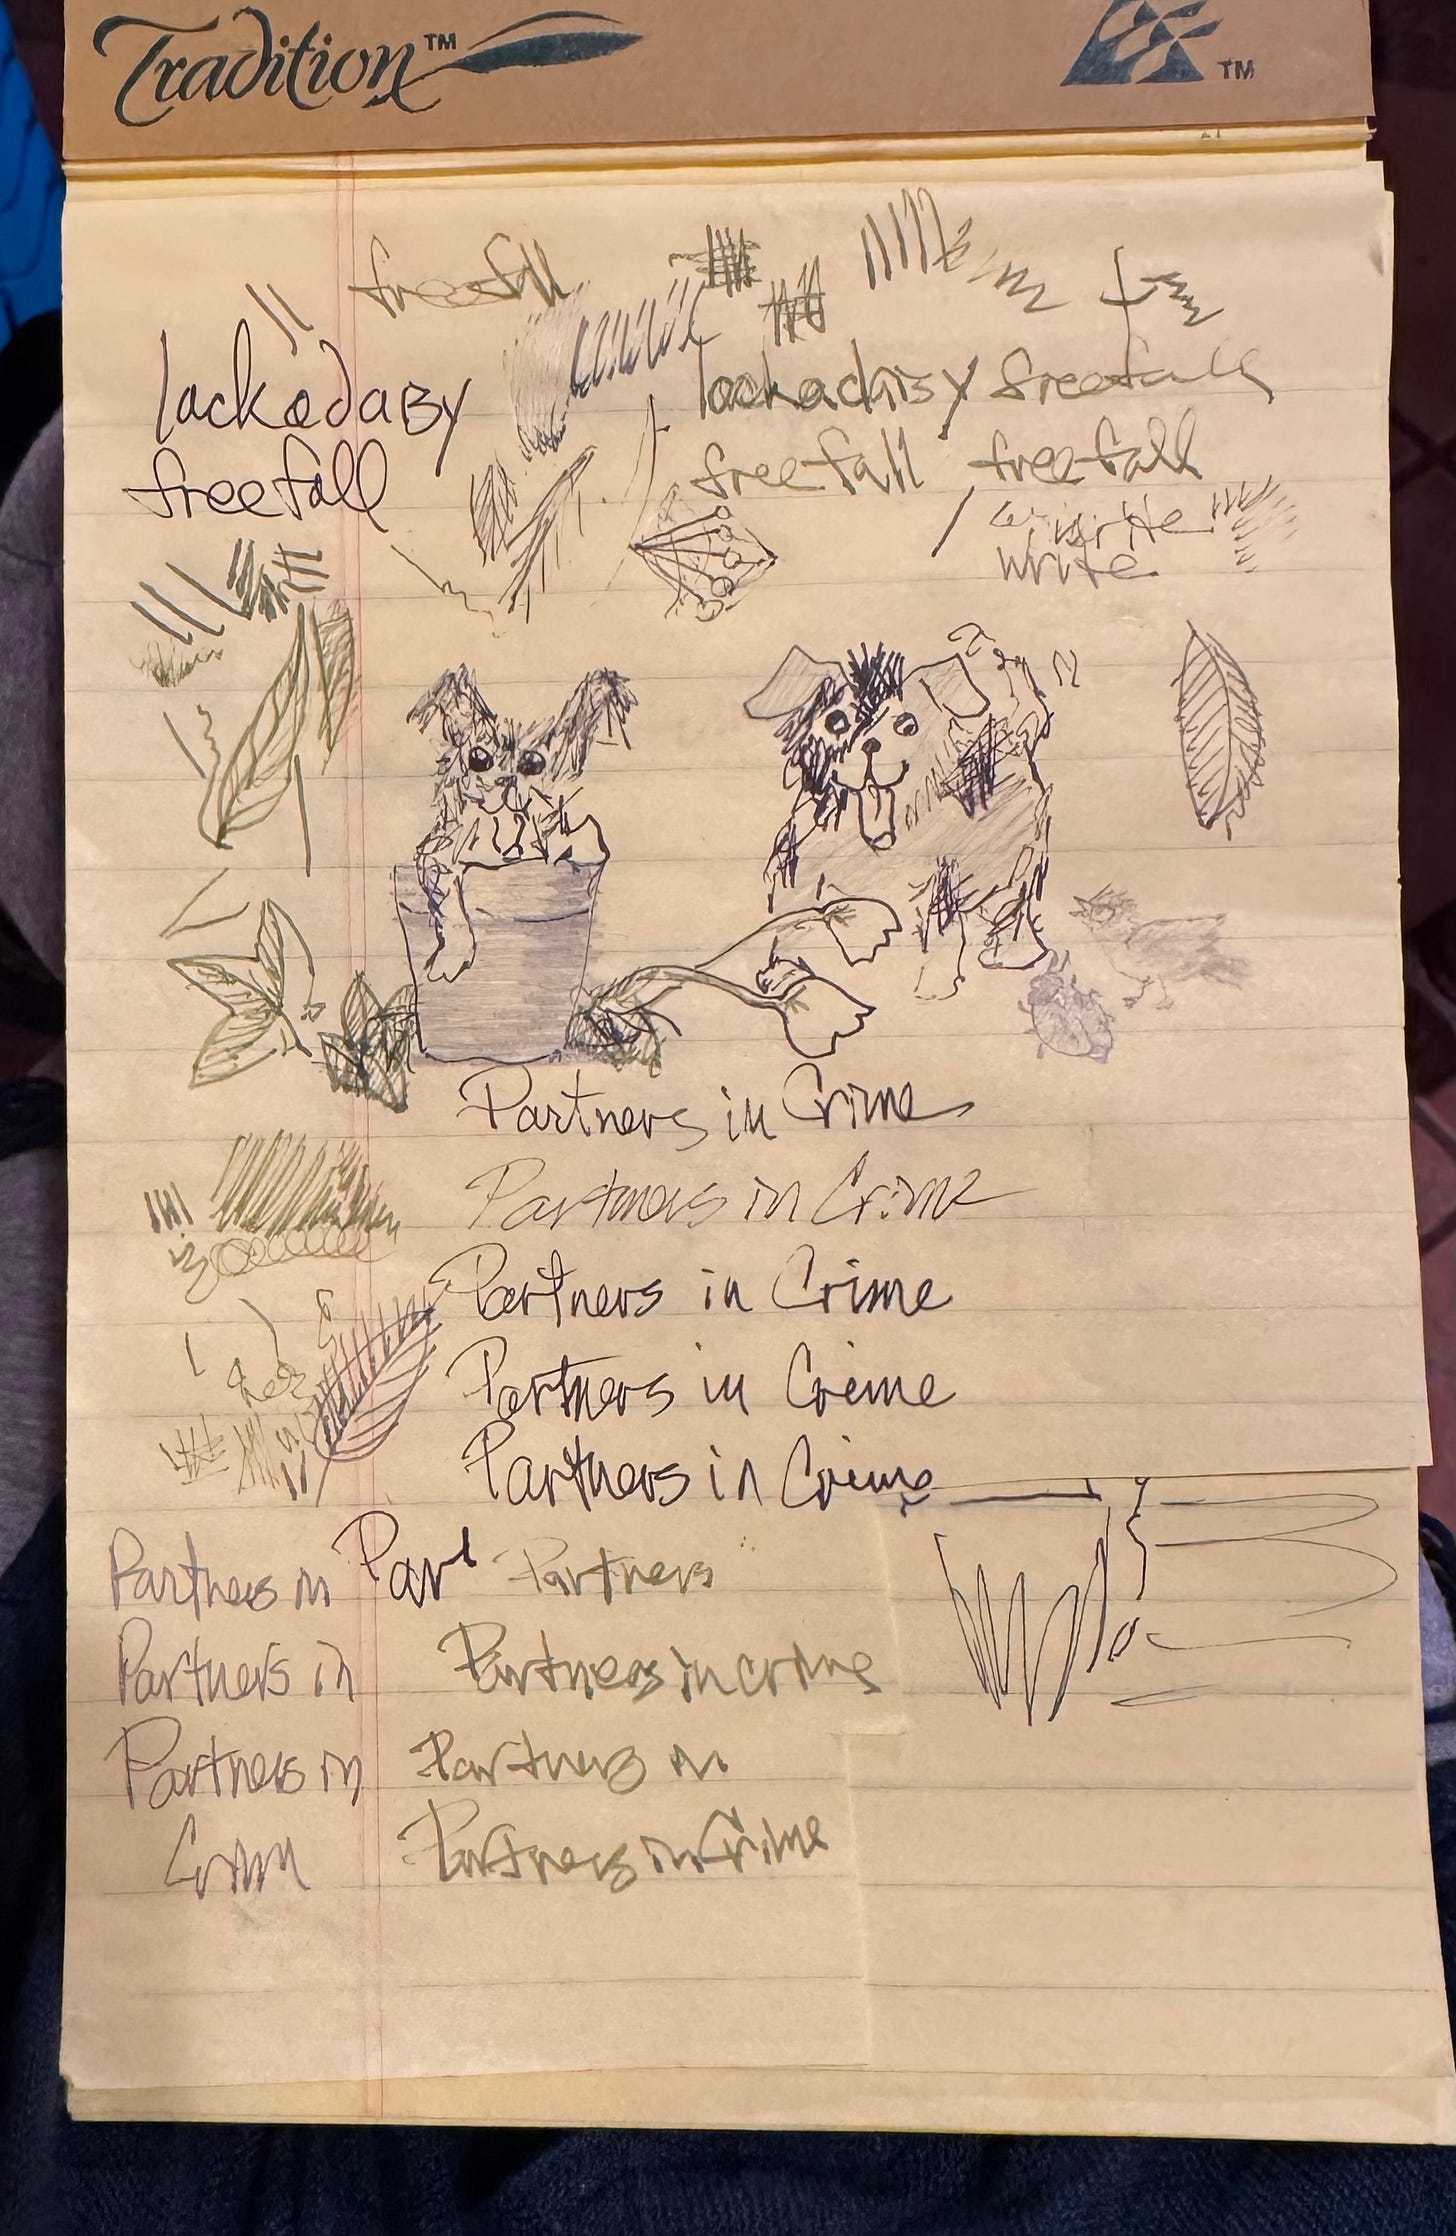 Tradition™
TM
freefall
lackadaisy
lackadaisy freefall
freefall
freefall freefall
write
write
Partners in Crime
Partners in Crime
Partners in Crime
Partners in Crime
Partners in Crime
Partners in Part Partners
Partners in Partners in crime
Partners in Partners in
Crim Partners in Crime